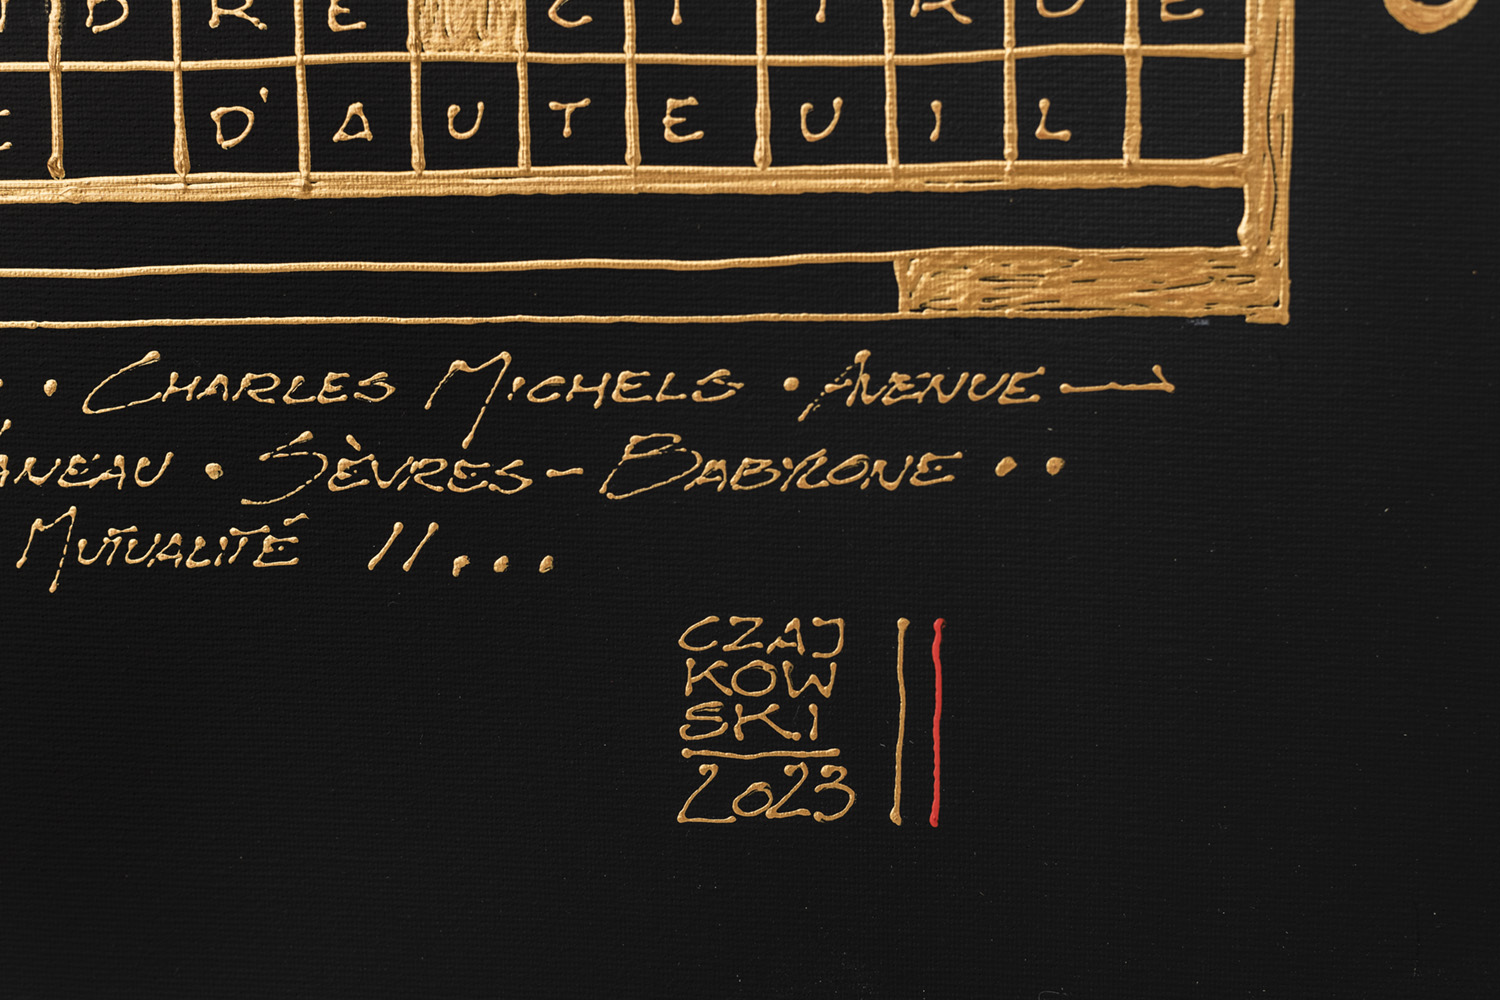 DRE
D'AUTEUIL
• CHARLES MICHELS • AVENUE —
ANEAU • SÈVRES-BABYLONE ••
MUTUALITÉ //...
CZAJ
KOW
SKI
2023